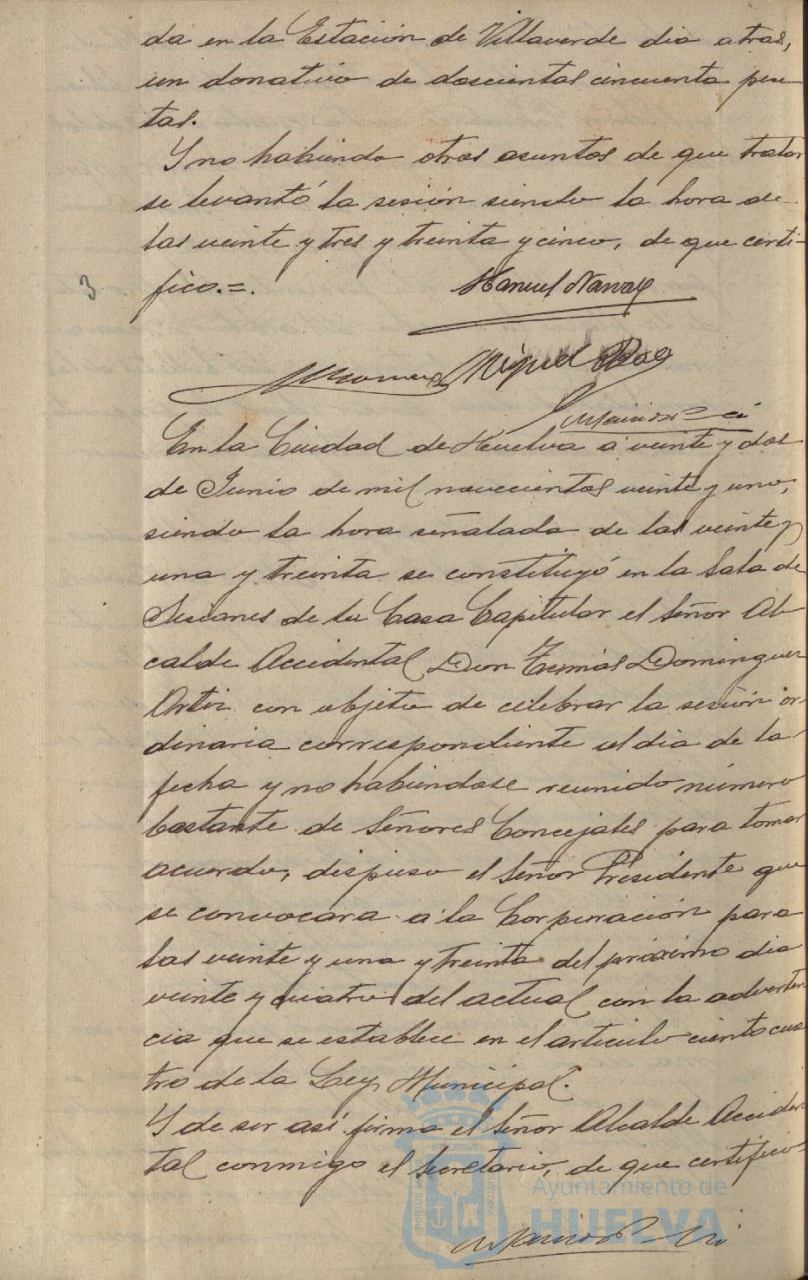 da en la Estación de Villaverde dia atras,
un donativo de doscientas cincuenta pese
tas.
Y no habiendo otros asuntos de que tratar
se levantó la sesión siendo la hora de
las veinte y tres y treinta y cinco, de que certi-
3 fico.=.
Manuel Navas
Miguel
En la Ciudad de Huelva a veinte y dos
de Junio de mil novecientos veinte y uno,
siendo la hora señalada de las veinte y
una y treinta se constituyó en la Sala de
Sesiones de la Casa Capitular el Señor Al-
calde Accidental Don Tomás Dominguez
Ortiz con objeto de celebrar la sesión or-
dinaria correspondiente al dia de la
fecha y no habiendose reunido número
bastante de Señores Concejales para tomar
acuerdo, dispuso el Señor Presidente que
se convocara a la Corporación para
las veinte y una y treinta del próximo dia
veinte y cuatro del actual con la adverten
cia que se establece en el articulo ciento cua
tro de la Ley Municipal.
Y de ser así firma el Señor Alcalde Acciden
tal conmigo el Secretario, de que certifico.
Ayuntamiento de
HUELVA